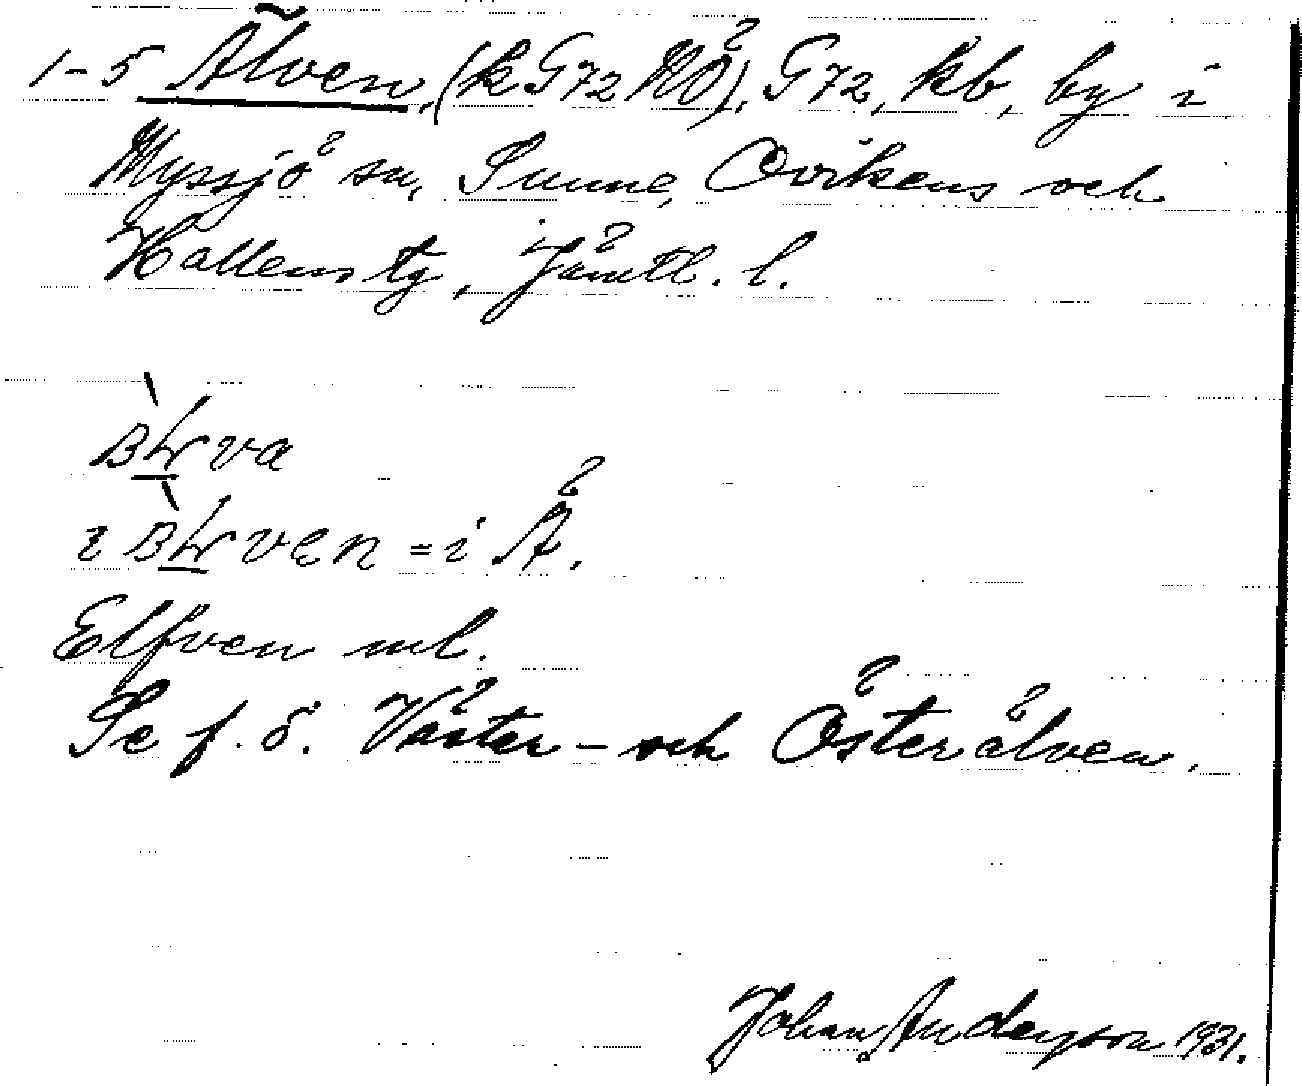 1-5 Älven, (k G72 NÖ), G72, kb, by i
Myssjö sn, Sunne, Ovikens och
Hallens tg, Jämtl. l.
i = i Ä.
Elfven ml.
Se f. ö. Väster- och Österälven.
Johan Anderson 1931.